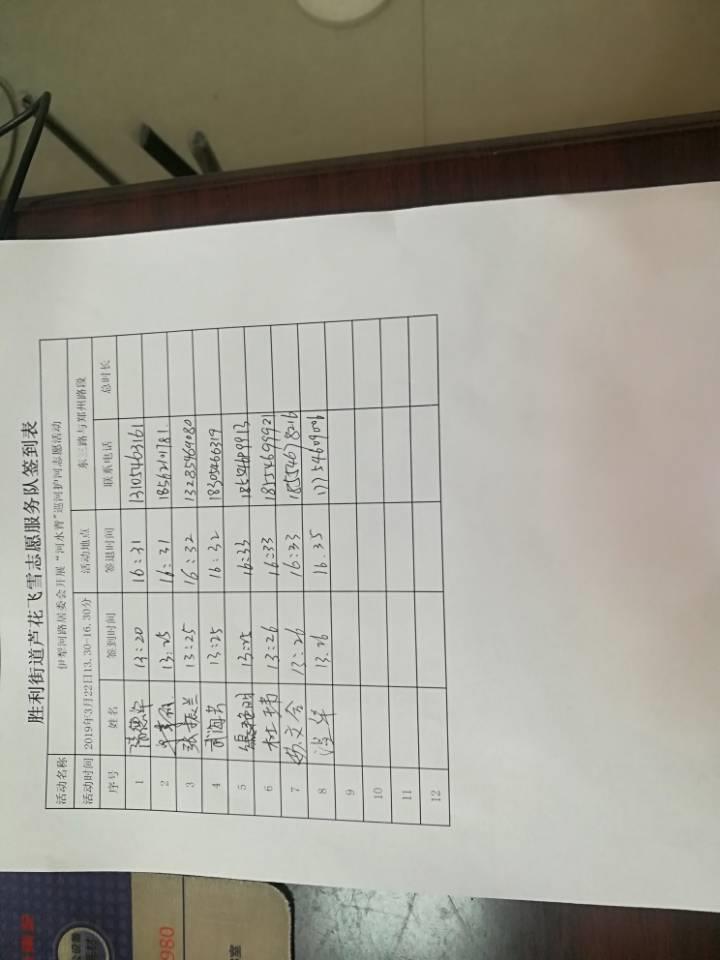 胜利街道芦花飞雪志愿服务队签到表
活动名称 伊犁河路居委会开展“河水青”巡河护河志愿活动
活动时间 2019年3月22日13.30-16.30分 活动地点 东三路与郑州路段
序号 姓名 签到时间 签退时间 联系电话 总时长
1 13:20 16:31 13105463161
2 13:25 16:31 18562101781
3 张振兰 13:25 16:32 13285469080
4 武海芳 13:25 16:32 18305466319
5 13:25 16:33
6 杜玮 13:26 16:33 18754699921
7 孙文会 13:26 16:33 18554678216
8 13.26 16.35 17754609006
9
10
11
12
980
室